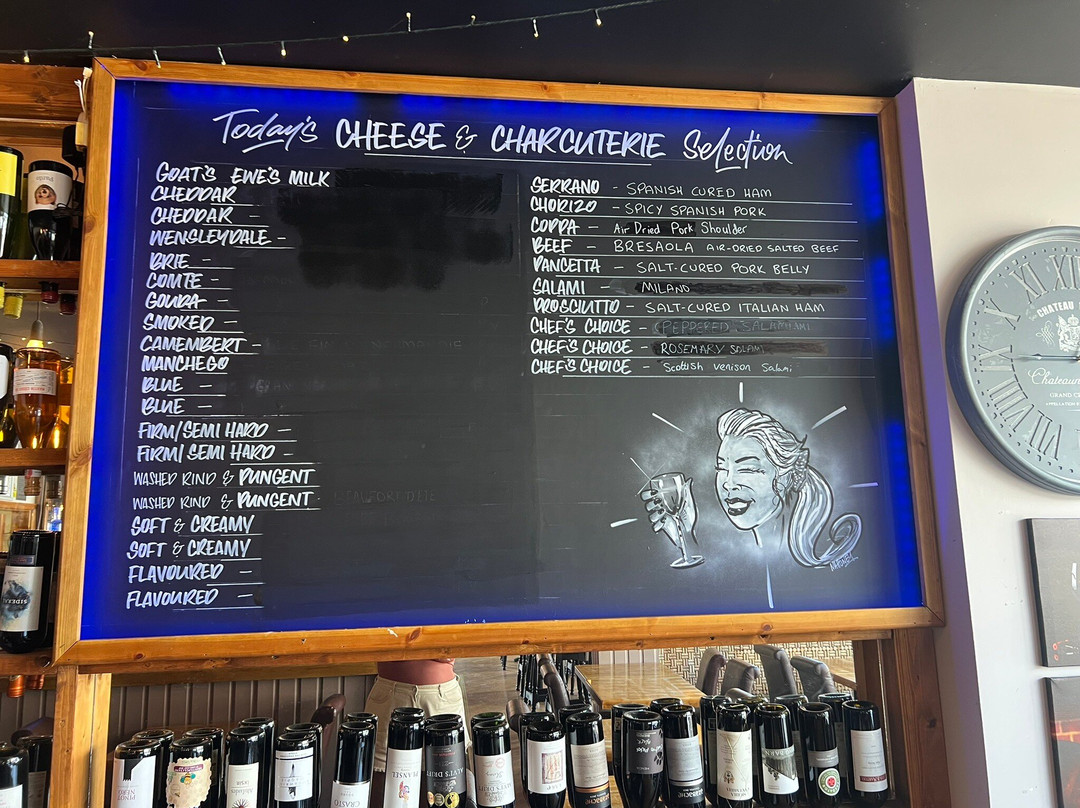 Today's CHEESE & CHARCUTERIE Selection
GOAT'S EWE'S MILK
CHEDDAR
CHEDDAR -
WENSLEYDALE -
BRIE -
COMTE -
GOUDA -
SMOKED -
CAMEMBERT -
MANCHEGO
BLUE -
BLUE -
FIRM/SEMI HARD -
FIRM/SEMI HARD -
WASHED RIND & PUNGENT -
WASHED RIND & PUNGENT -
SOFT & CREAMY
SOFT & CREAMY
FLAVOURED -
FLAVOURED -
SERRANO - SPANISH CURED HAM
CHORIZO - SPICY SPANISH PORK
COPPA - Air Dried Pork Shoulder
BEEF - BRESAOLA AIR-DRIED SALTED BEEF
PANCETTA - SALT-CURED PORK BELLY
SALAMI - MILANO
PROSCIUTTO - SALT-CURED ITALIAN HAM
CHEF'S CHOICE - PEPPERED SALAMI
CHEF'S CHOICE - ROSEMARY SALAMI
CHEF'S CHOICE - Scottish venison Salami
X XI XII
IX
VIII
VII
CHATEAU
GRAND
SIDERAL
PINOT